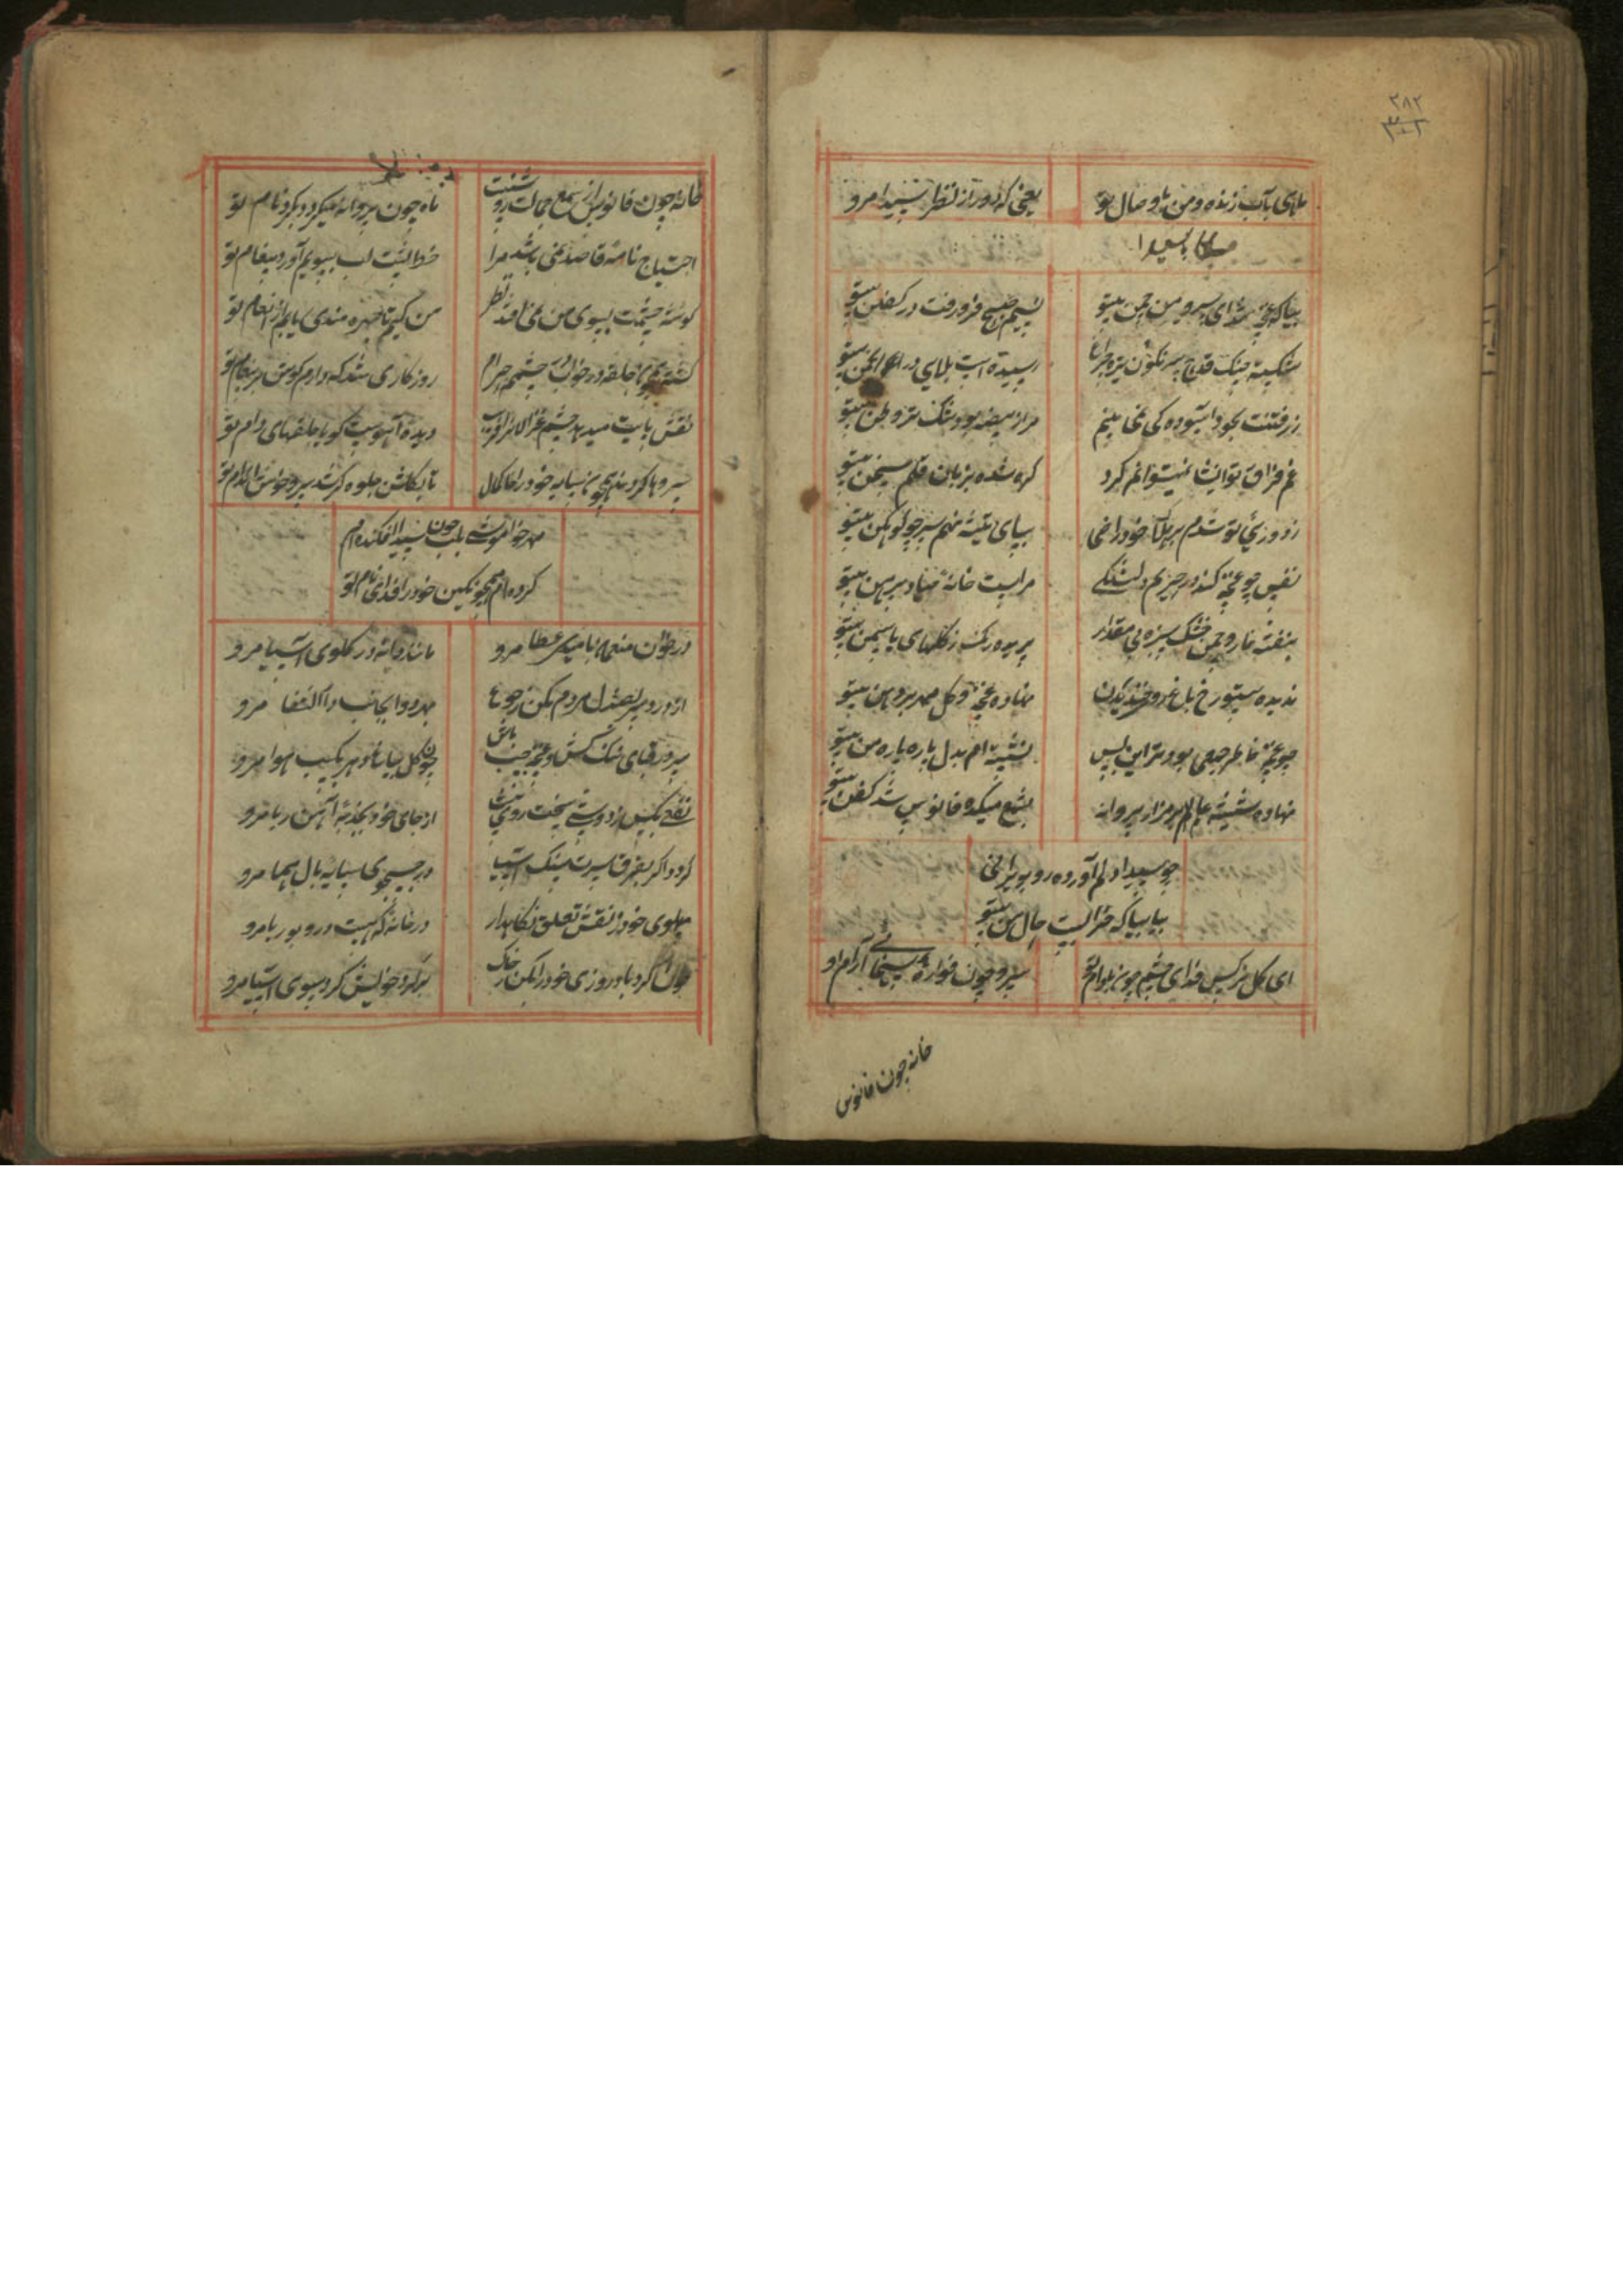 ۲۸۲
ماهی بآب زنده و من با وصال تو یعنی که دور از نظر سیدا مرو
بیا که غنچه شد ای سرو من چمن بیتو نسیم صبح فرو رفت در کفن بیتو
شکسته چنگ قدح سرنگون رسیده است بلای در انجمن بیتو
ز رفتنت بخود آسوده کی نمی بینم مرا ز بیضه بود تنگ تر وطن بیتو
غم فراق تو انشا نمیتوانم کرد گره شده بزبان قلم سخن بیتو
ز دوری تو شدم بر هلاک خود راضی بپای تیشه نهم سر چو کوهکن بیتو
نفس چو غنچه کند در حریم دلتنگی مراست خانه نهاد پیرهن بیتو
بنفشه خار و چمن خشک سبزه بی مقدار پریده رنگ ز گلهای یاسمن بیتو
ندیده بیتو رخ باغ رو خندیدن نهاده غنچه و گل مهر بر دهن بیتو
چو غنچه خاطر جمعی بود ترا این بس نشسته ام بدل پاره پاره من بیتو
نهاده شیشه بر مزار پروانه بشمع میکده فانوس شد کفن بیتو
چو سیدا دلم آورده رو بویرانی
بیا بیا که خرابست حال من بیتو
ای گل نرگس فدای چشم چون بادام تو سرو چون فواره آرام تو
خانه چون فانوس
خانه چون فانوس از شمع جمالت روشنست ماه چون پروانه میگردد بگرد نام تو
احتیاج نامه قاصد نمی باشد مرا خط پشت لب بسویم آورد پیغام تو
گوشه چشمت بسوی من نمی افتد نظر من کیم تا بهره مندی یابم از انعام تو
گشته همچو حلقه در خواب بر چشمم حرام روزگاری شد که دارم گوش بر پیغام تو
نقش پایت میدهد چشم غزالان را فریب دیده آهوست گویا حلقهای دام تو
سروها کردند همچو سایه خود را خاکمال تا بگلشن جلوه گر شد سرو خوش اندام تو
مهر خاموشی بلب چون سیدا افکنده ام
کرده ام همچو نگین خود را فدای نام تو
در خوان منعمان بامید عطا مرو مانند دانه در گلوی آسیا مرو
از درد سر بصندل مردم مکن رجوع بهر دوا بجانب دار الشفا مرو
پرورده قبای تنگ کش و غنچه چسب باش چون گل بباغ دهر بکسب هوا مرو
نفعی بکس ز دوستی سخت روی نیست از جای خود بجذبه آهن ربا مرو
گردد اگر بفرق سرت سنگ آسیا در جستجوی سایه بال هما مرو
پهلوی خود ز نقش تعلق نگاهدار در خانه که هست درو بوریا مرو
چون گردباد روزی خود را بکن ز خاک بر گرد خویش گرد بسوی آسیا مرو